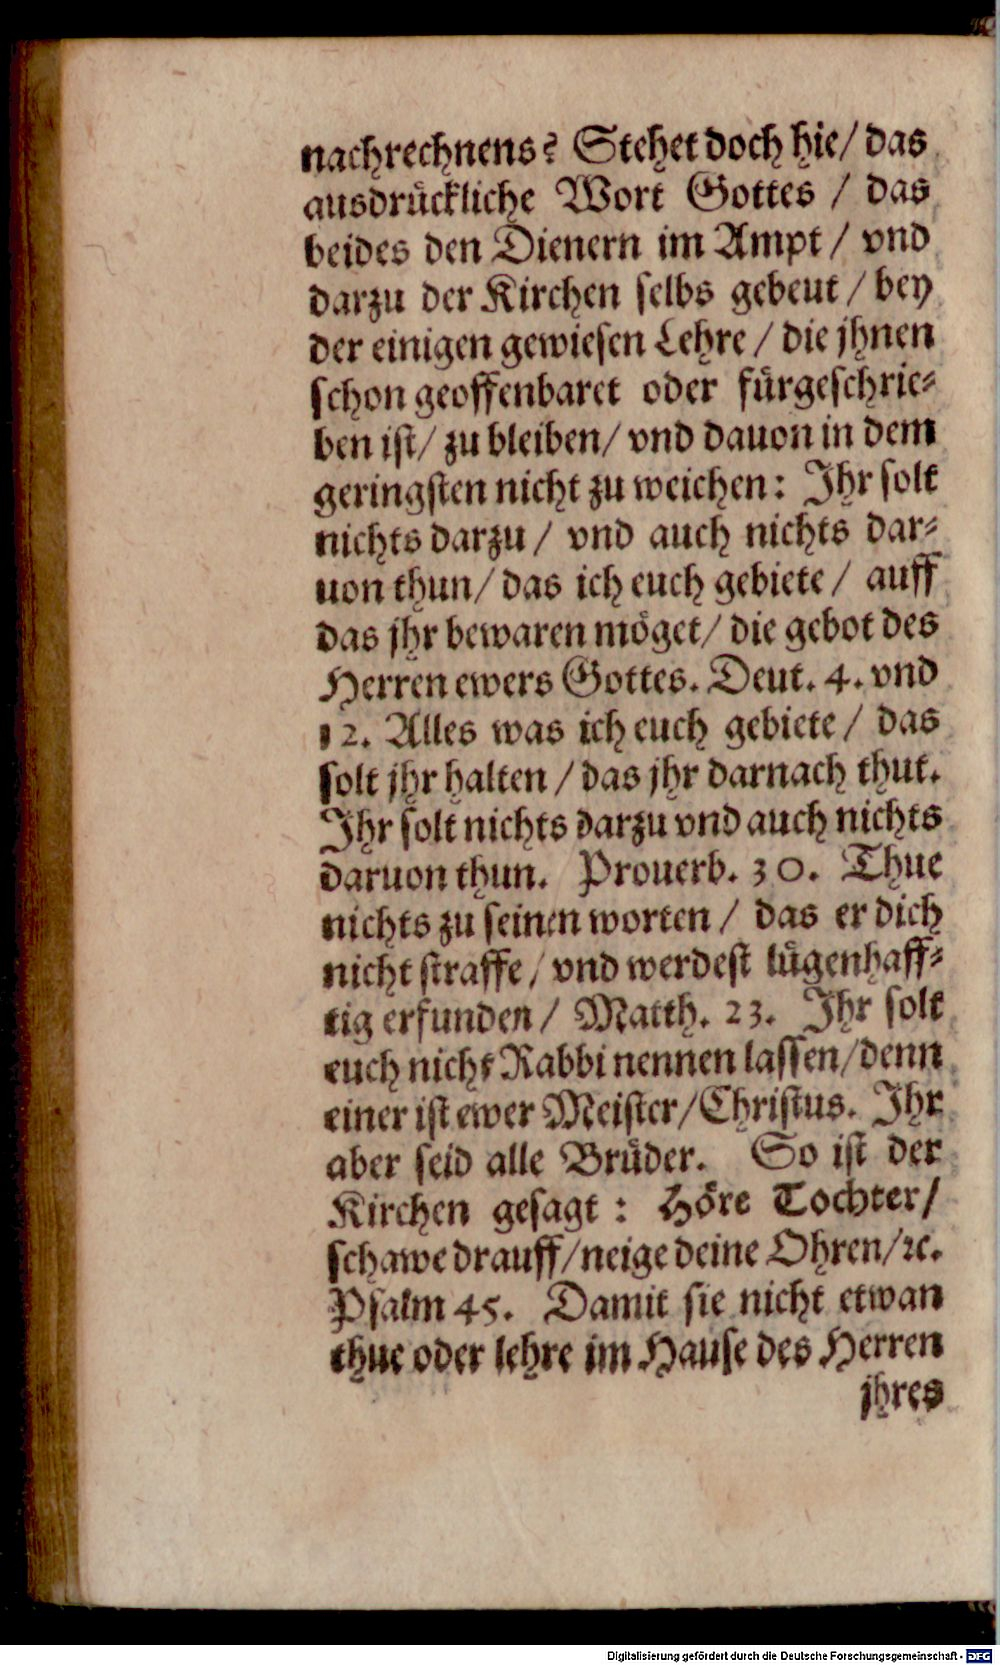 nachrechnens? Stehet doch hie/ das
ausdrückliche Wort Gottes / das
beides den Dienern im Ampt / vnd
darzu der Kirchen selbs gebeut / bey
der einigen gewiesen Lehre / die jhnen
schon geoffenbaret oder fürgeschrie⸗
ben ist/ zu bleiben/ vnd dauon in dem
geringsten nicht zu weichen: Ihr solt
nichts darzu / vnd auch nichts dar⸗
uon thun/ das ich euch gebiete / auff
das jhr bewaren möget/ die gebot des
Herren ewers Gottes. Deut. 4. vnd
12. Alles was ich euch gebiete / das
solt jhr halten / das jhr darnach thut.
Ihr solt nichts darzu vnd auch nichts
daruon thun. Prouerb. 30. Thue
nichts zu seinen worten / das er dich
nicht straffe / vnd werdest lügenhaff⸗
tig erfunden / Matth. 23. Ihr solt
euch nicht Rabbi nennen lassen/denn
einer ist ewer Meister/Christus. Ihr
aber seid alle Brüder. So ist der
Kirchen gesagt : Höre Tochter/
schawe drauff/neige deine Ohren/ꝛc.
Psalm 45. Damit sie nicht etwan
thue oder lehre im Hause des Herren
jhres
Digitalisierung gefördert durch die Deutsche Forschungsgemeinschaft - DFG